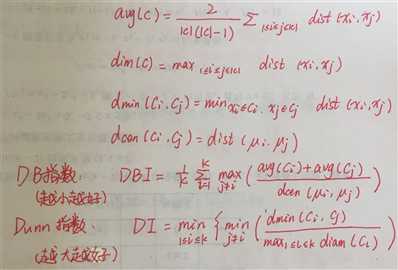 avg(C) = 2 / |C|(|C|-1) Σ 1≤i≤j≤|C| dist (xi, xj)
dim(C) = max 1≤i≤j≤|C| dist (xi, xj)
dmin (Ci, Cj) = min xi∈Ci, xj∈Cj dist (xi, xj)
dcen (Ci, Cj) = dist (μi, μj)
DB指数 DBI = 1/k Σ i=1 k max j≠i ( avg(Ci) + avg(Cj) / dcen (μi, μj) )
(越小越好)
Dunn 指数. DI = min 1≤i≤k { min j≠i ( dmin (Ci, Cj) / max 1≤l≤k diam (Cl) )
(越大越好)